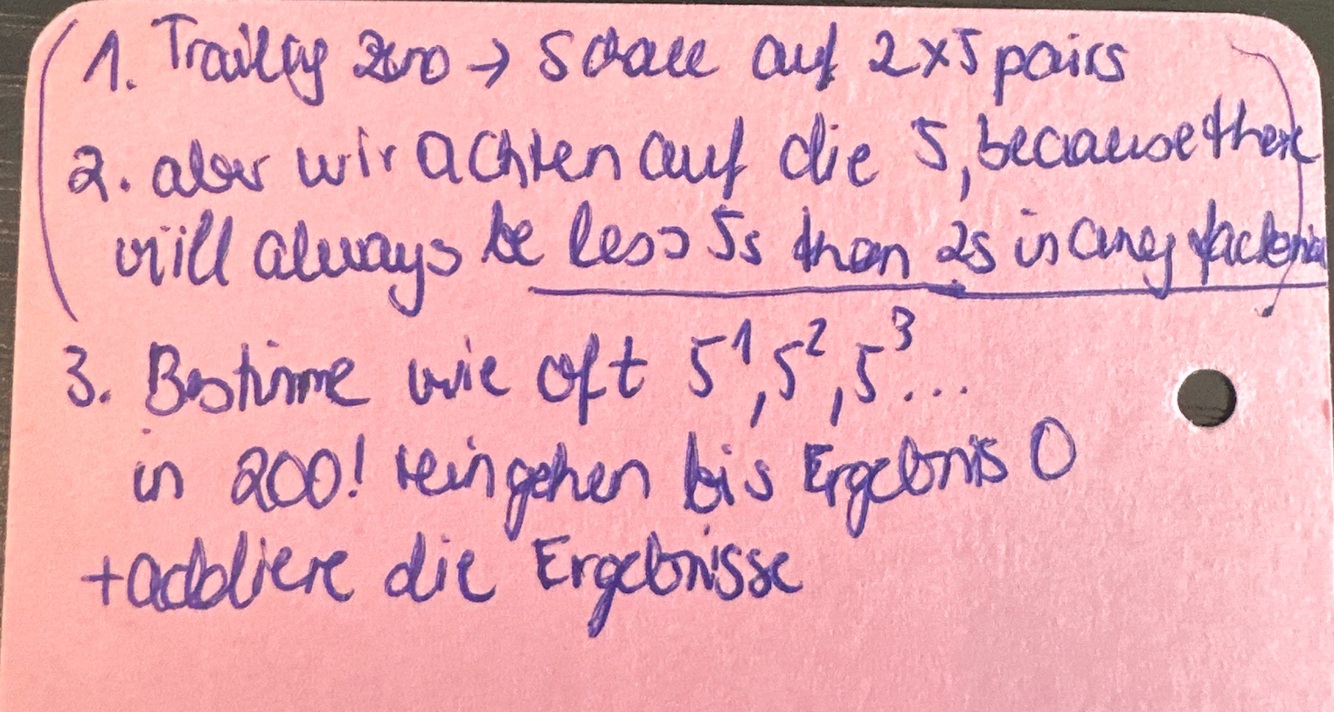 1. Trailing zero → schaue auf 2x5 pairs
2. aber wir achten auf die 5, because there
will always be less 5s than 2s in any factorial
3. Bestimme wie oft 5¹, 5², 5³...
in 200! reingehen bis Ergebnis 0
+ addiere die Ergebnisse